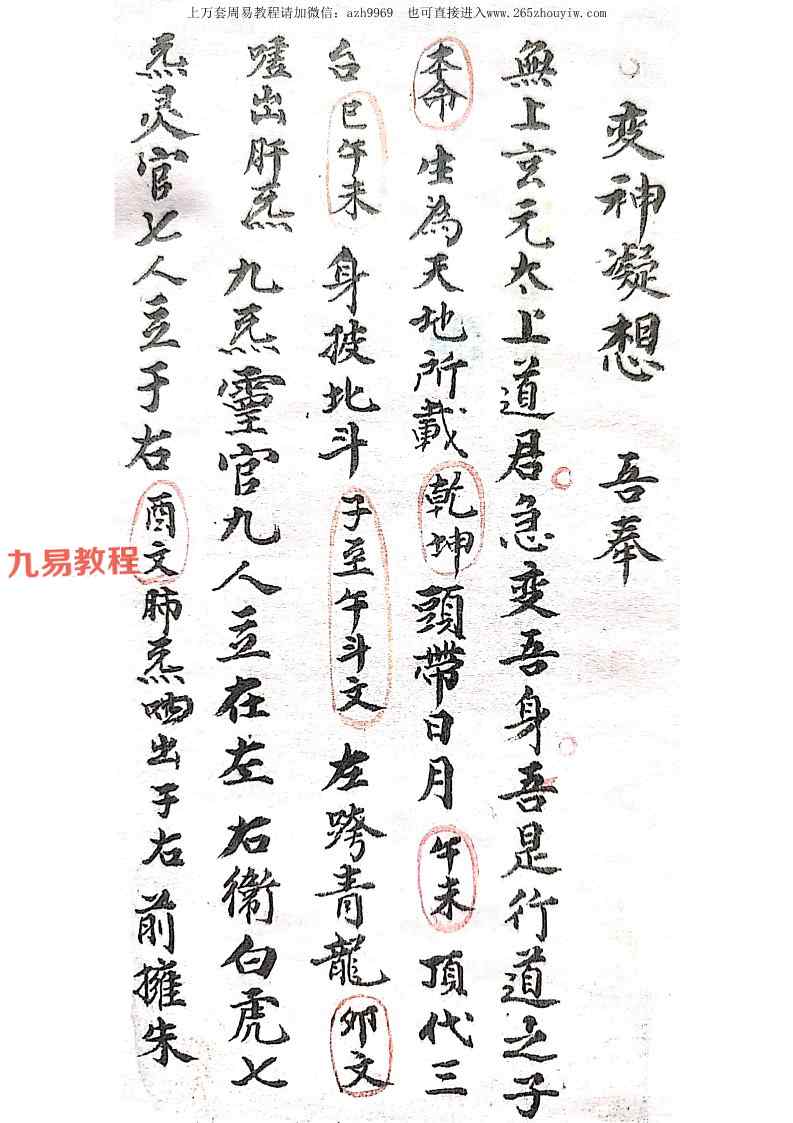 上万套周易教程请加微信：azh9969 也可直接进入www.265zhouyiw.com
变神凝想 吾奉
無上玄元太上道君急变吾身吾是行道之子
本命 生為天地所載 乾坤 頭帶日月 午未 頂代三
台 巳午未 身披北斗 子至午斗文 左跨青龍 卯文
嘘出肝炁 九炁靈官九人立在左 右衛白虎七
炁灵官七人立于右 酉文 肺炁呬出于右 前擁朱
九易教程